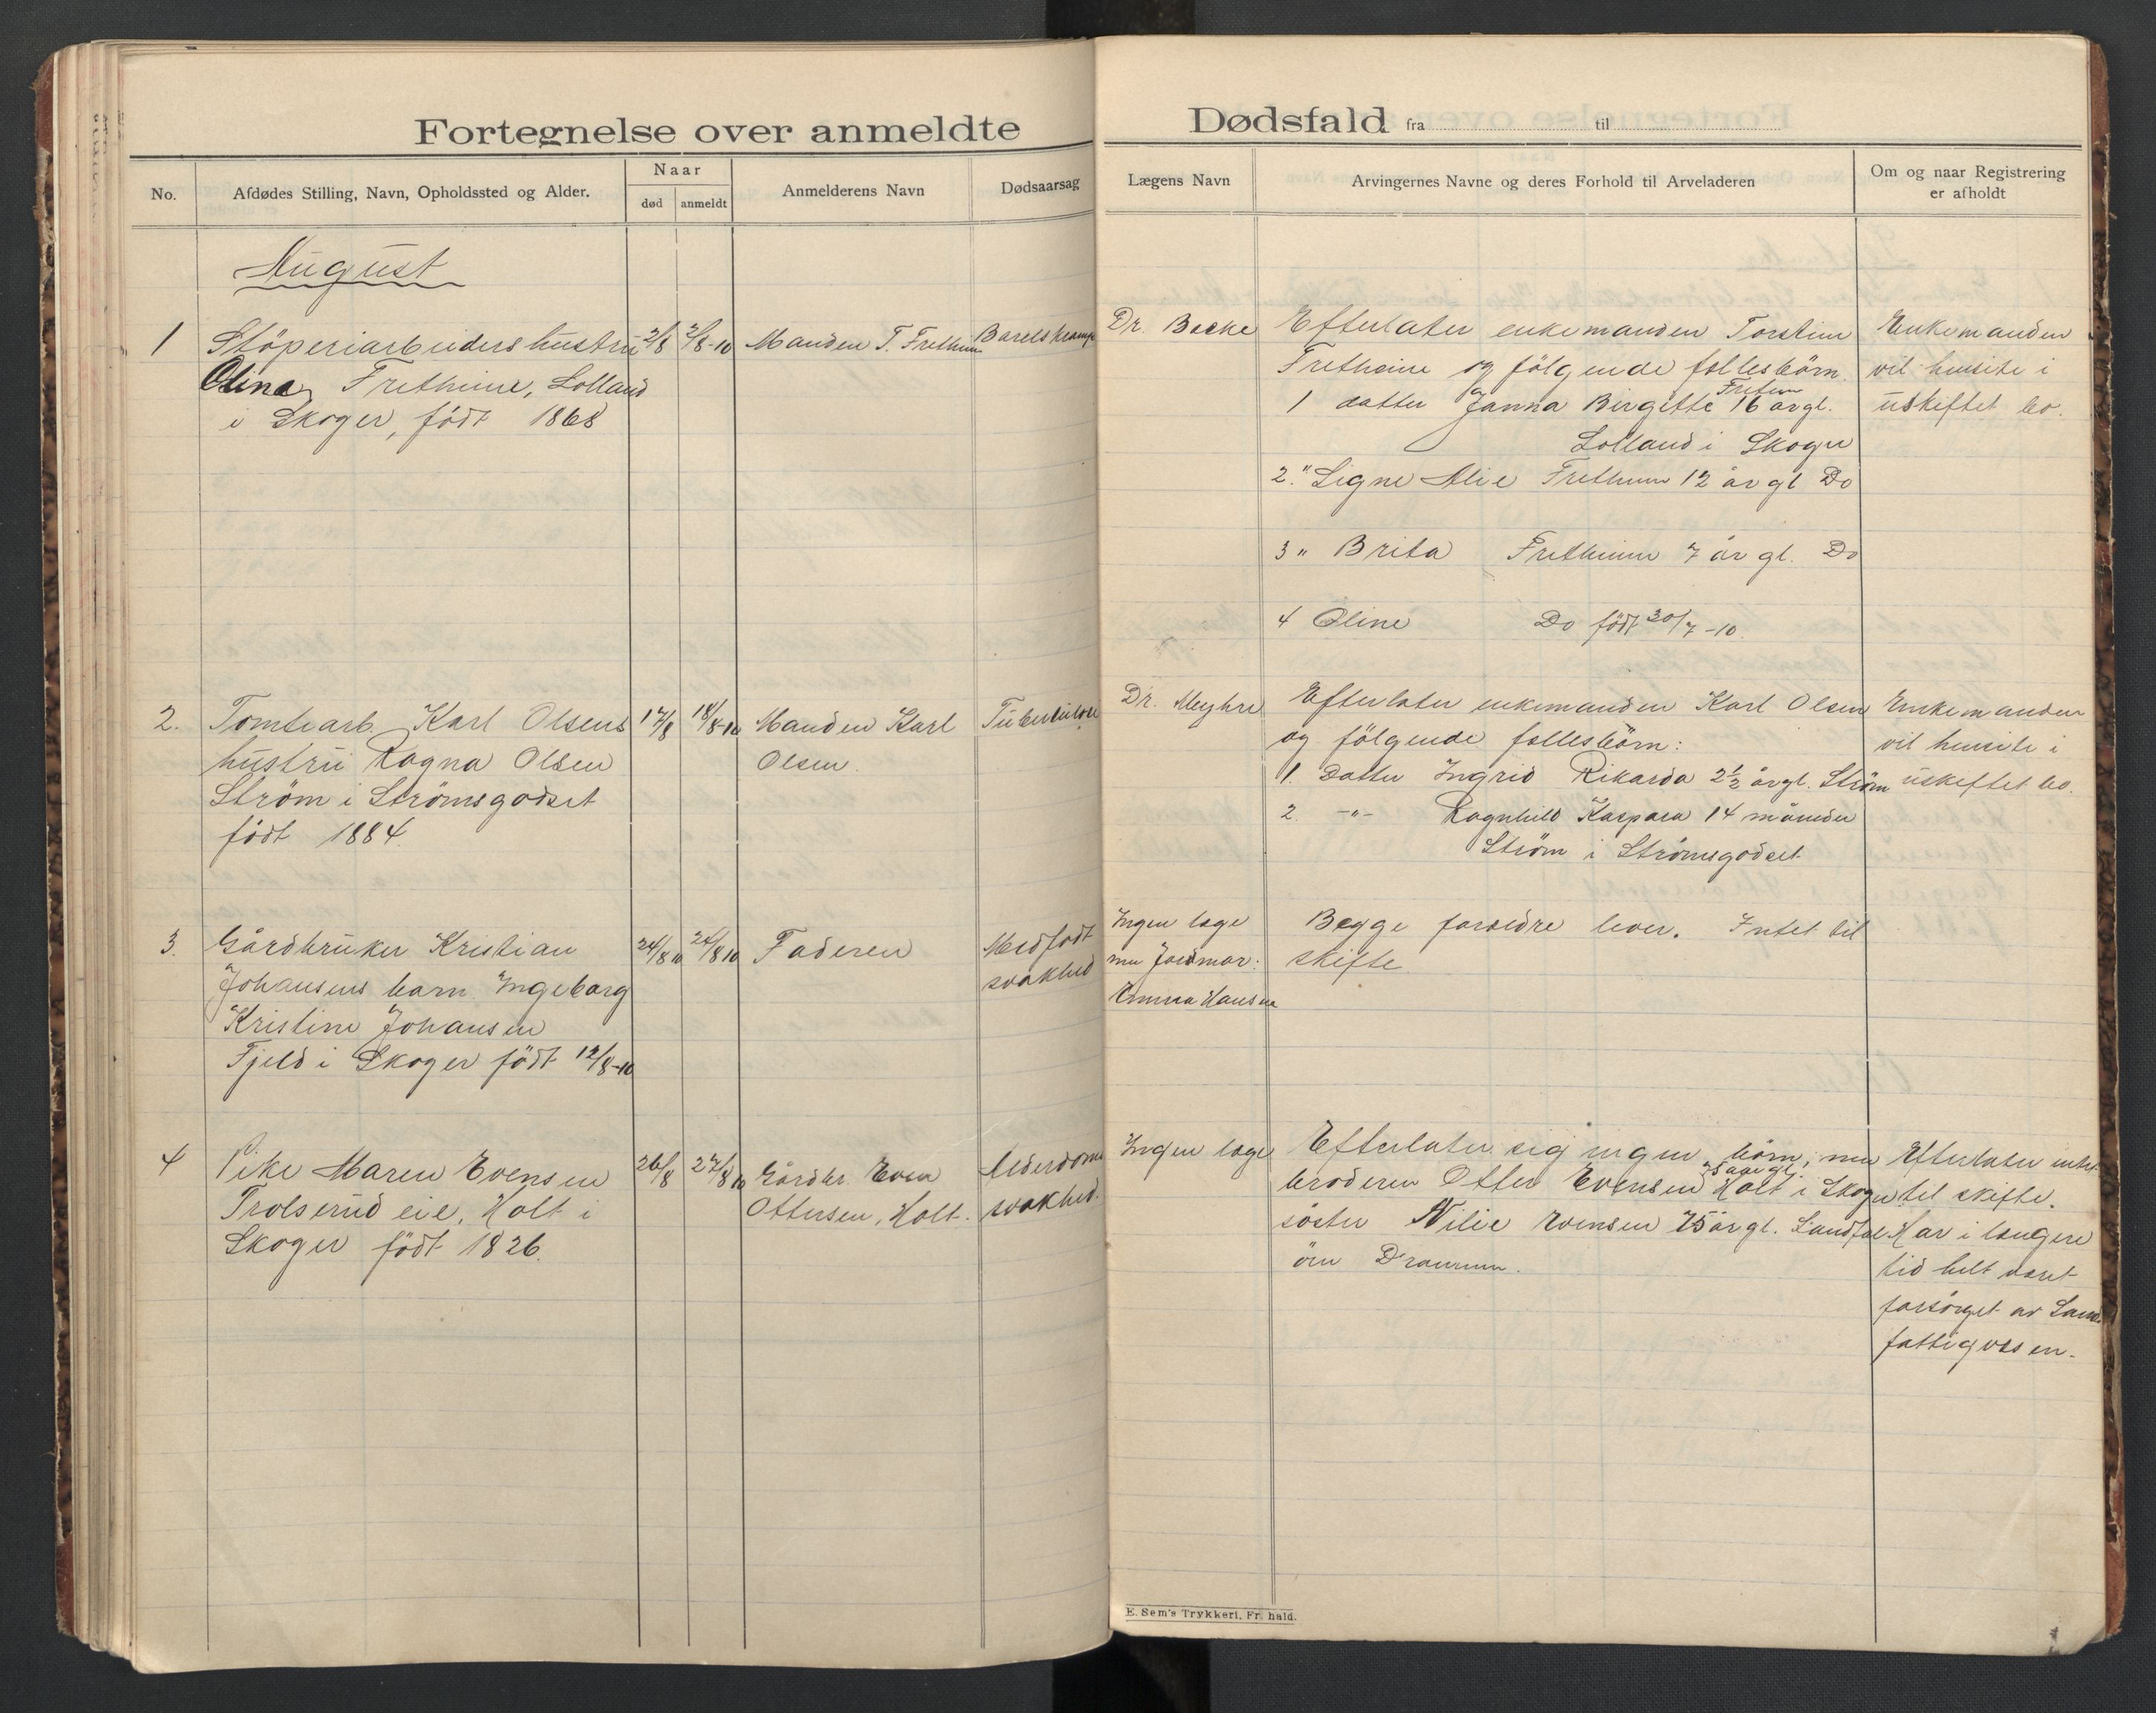 Fortegnelse over anmeldte
Dødsfald fra til
No.
Afdødes Stilling, Navn, Opholdssted og Alder.
Naar
død
anmeldt
Anmelderens Navn
Dødsaarsag
Lægens Navn
Arvingernes Navne og deres Forhold til Arveladeren
Om og naar Registrering
er afholdt
August
1
Støperiarbeiders hustru
Olina Fretheine, Solland
i Skoger, født 1868
2/8
2/8-10
Manden T. Frethem
Barelskrampe
Dr. Backe
Efterlater enkemanden Torstein
Fretheine og følgende fellesbörn.
1 datter Janna Birgitte Frethem 16 år gl.
Solland i Skoger
2. " Signe Alie Frethem 12 år gl Do
3 " Brita Fretheim 7 år gl. Do
4 Oline Do født 30/7-10.
Enkemanden
vil hensitte i
uskiftet bo.
2.
Tomtearb. Karl Olsens
hustru Ragna Olsen
Strøm i Strømsgodset
født 1884.
17/8
18/8-10
Manden Karl
Olsen.
Tuberkulose
Dr. Meyhre
Efterlater enkemanden Karl Olsen
og følgende fellesbörn:
1. Datter Ingrid Rikarda 2½ år gl. Strøm
2. -"- Ragnhild Kaspara 14 måneder
Strøm i Strømsgodset
Enkemanden
vil hensitte i
uskiftet bo.
3.
Gårdbruker Kristian
Johansens barn Ingeborg
Kristine Johansen
Fjeld i Skoger født 12/8-10
24/8 10
24/8 10
Faderen
Medfødt
svakhed
Ingen læge
men Jordmor:
Emma Hansen
Begge foreldre lever. Intet til
skifte
4
Pike Maren Evensen
Trolserud eie, Holt i
Skoger født 1826.
26/8
27/8 10
Gårdbr. Even
Ottersen, Holt.
Alderdoms
svakhed.
Ingen læge
Efterlater sig ingen børn, men
broderen Otter Evensen Holt i Skoger
søster Nilie Evensen 75 år gl. Landfal-
öen Drammen.
Efterlater intet
til skifte.
Har i længere
tid helt været
forsørget av
fattigvæsen.
E. Sem's Trykkeri, Fr. hald.